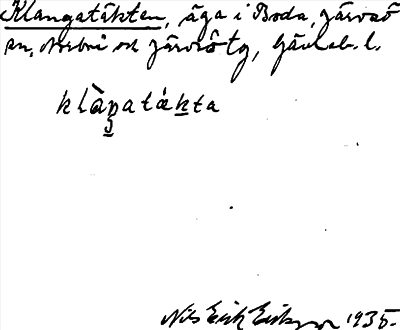 Klangatäkten, äga i Boda, Järvsö
sn, Norrbo och Järvsötg, Gävleb. l.
klàŋatákta
Nils Erik Eriksson 1935.